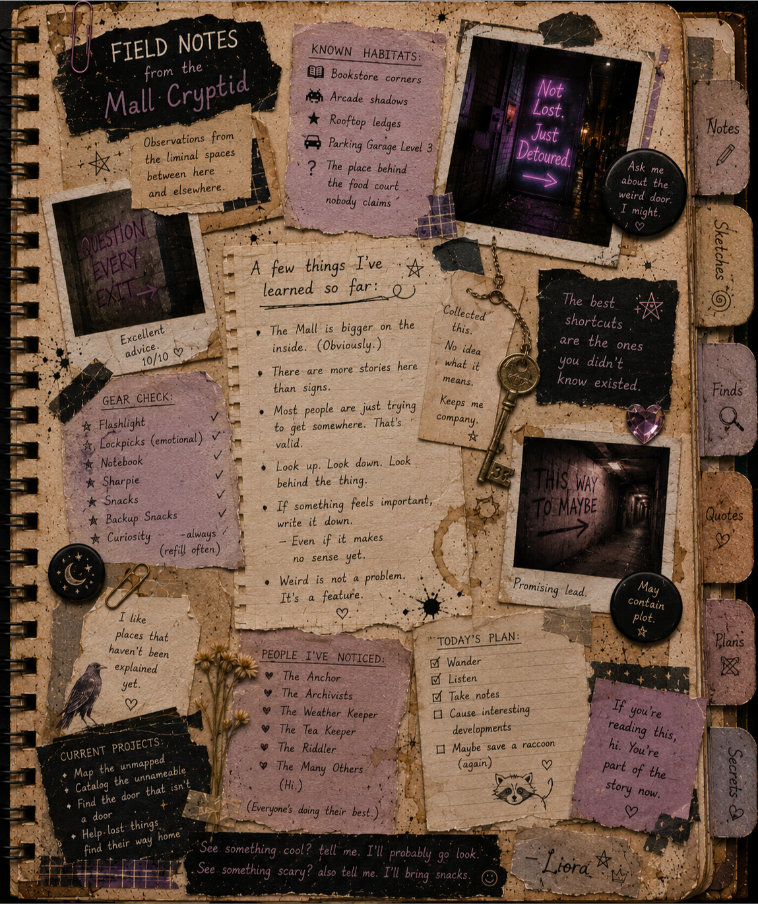 FIELD NOTES
from the
Mall Cryptid
Observations from
the liminal spaces
between here
and elsewhere.
KNOWN HABITATS:
Bookstore corners
Arcade shadows
Rooftop ledges
Parking Garage Level 3
? The place behind
the food court
nobody claims
Not
Lost.
Just
Detoured.
Ask me
about the
weird door.
I might.
Notes
Sketches
Finds
Quotes
Plans
Secrets
QUESTION
EVERY
EXIT
Excellent
advice.
10/10
A few things I've
learned so far:
• The Mall is bigger on the
inside. (Obviously.)
• There are more stories here
than signs.
• Most people are just trying
to get somewhere. That's
valid.
• Look up. Look down. Look
behind the thing.
• If something feels important,
write it down.
– Even if it makes
no sense yet.
• Weird is not a problem.
It's a feature.
Collected
this.
No idea
what it
means.
Keeps me
company.
The best
shortcuts
are the ones
you didn't
know existed.
GEAR CHECK:
Flashlight
Lockpicks (emotional)
Notebook
Sharpie
Snacks
Backup Snacks
Curiosity –always
(refill often)
THIS WAY
TO MAYBE
Promising lead.
May
contain
plot.
I like
places that
haven't been
explained
yet.
PEOPLE I'VE NOTICED:
The Anchor
The Archivists
The Weather Keeper
The Tea Keeper
The Riddler
The Many Others
(Hi.)
(Everyone's doing their best.)
TODAY'S PLAN:
Wander
Listen
Take notes
Cause interesting
developments
Maybe save a raccoon
(again)
If you're
reading this,
hi. You're
part of the
story now.
CURRENT PROJECTS:
Map the unmapped
Catalog the unnameable
Find the door that isn't
a door
Help lost things
find their way home
See something cool? tell me. I'll probably go look.
See something scary? also tell me. I'll bring snacks.
– Liora